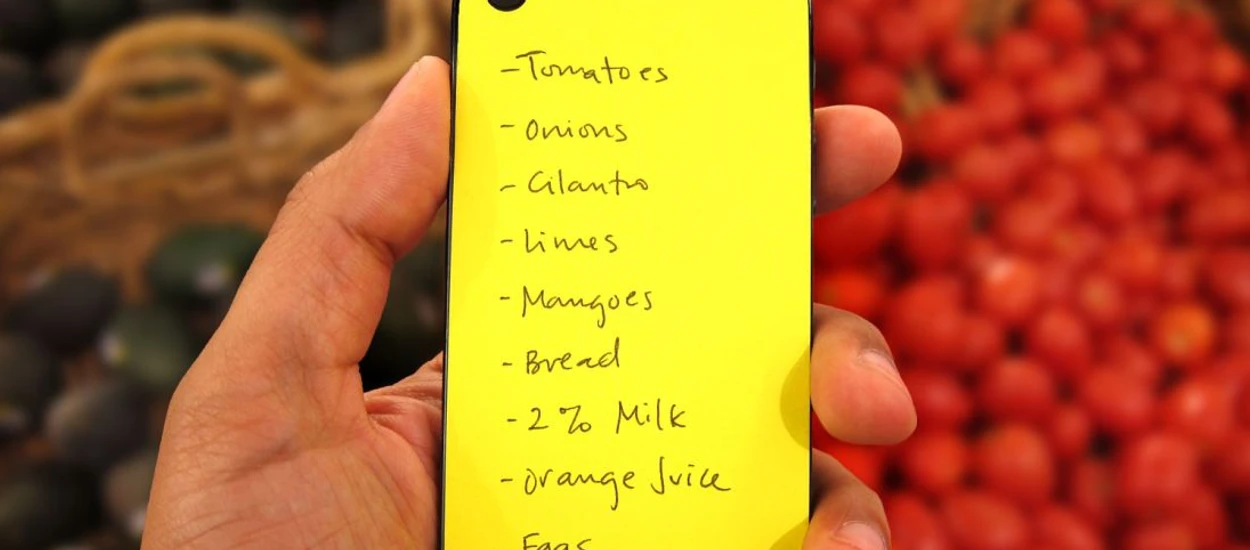 -Tomatoes
- Onions
- Cilantro
- Limes
- Mangoes
- Bread
- 2% Milk
- Orange Juice
Eggs